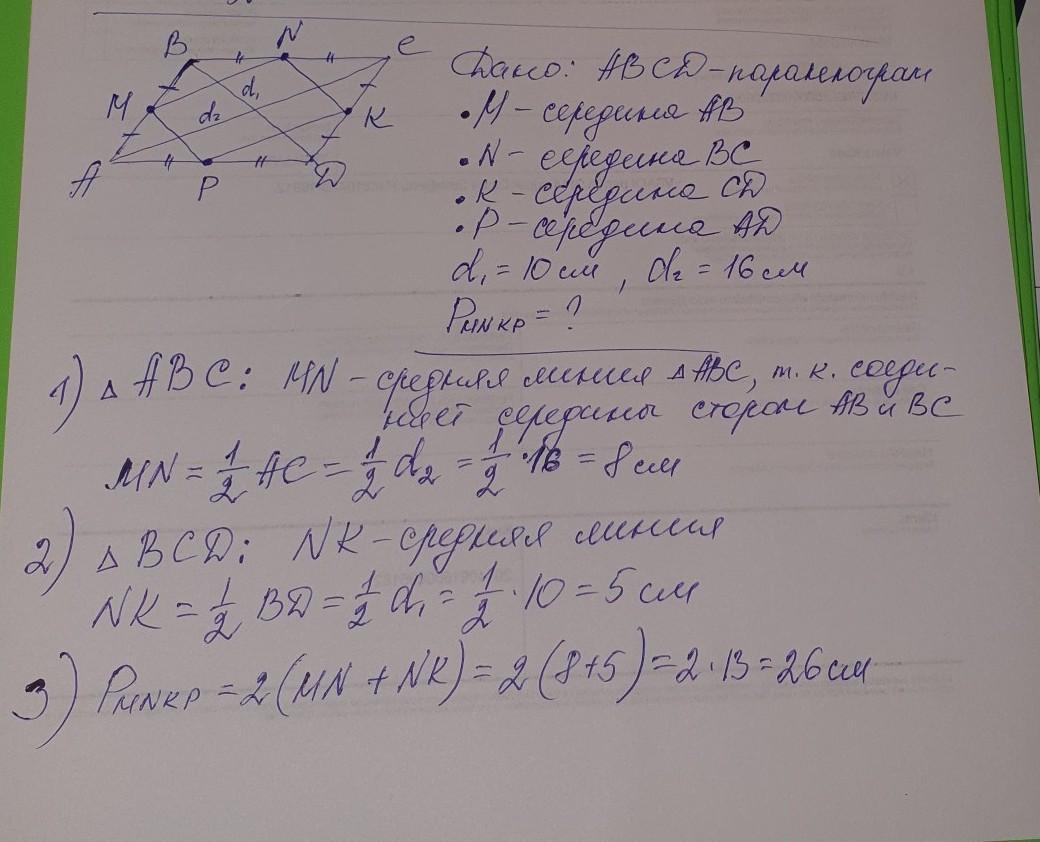 B N C
d₁
M d₂ K
A P D
Дано: ABCD – паралелограм
• M – середина AB
• N – середина BC
• K – середина CD
• P – середина AD
d₁ = 10 см , d₂ = 16 см
P_MNKP = ?
1) △ ABC: MN – средняя линия △ ABC, т. к. соеди-
няет середины сторон AB и BC
MN = 1/2 AC = 1/2 d₂ = 1/2 · 16 = 8 см
2) △ BCD: NK – средняя линия
NK = 1/2 BD = 1/2 d₁ = 1/2 · 10 = 5 см
3) P_MNKP = 2 (MN + NK) = 2 (8+5) = 2 · 13 = 26 см